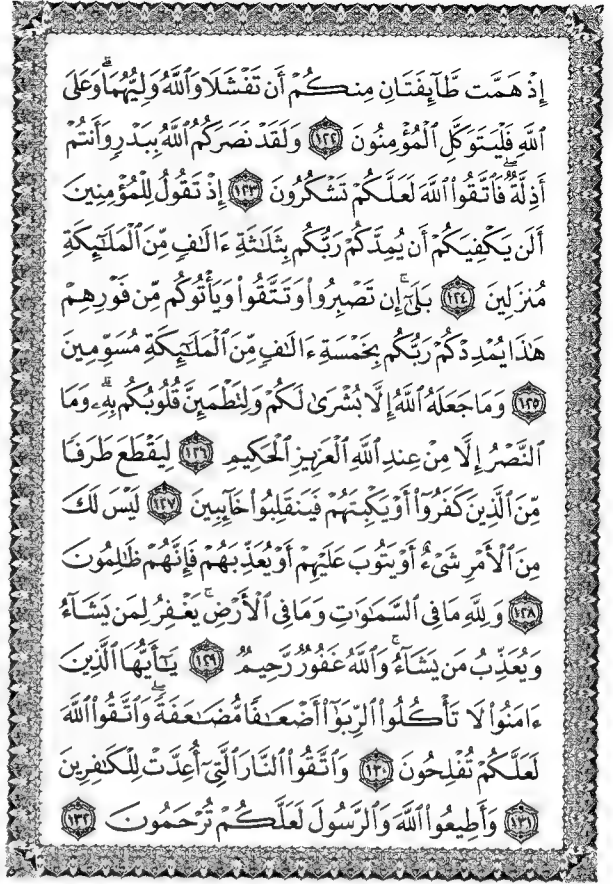 إِذْ هَمَّت طَّآئِفَتَانِ مِنكُمْ أَن تَفْشَلَا وَٱللَّهُ وَلِيُّهُمَا ۗ وَعَلَى
ٱللَّهِ فَلْيَتَوَكَّلِ ٱلْمُؤْمِنُونَ ﴿١٢٢﴾ وَلَقَدْ نَصَرَكُمُ ٱللَّهُ بِبَدْرٍ وَأَنتُمْ
أَذِلَّةٌ ۖ فَٱتَّقُوا۟ ٱللَّهَ لَعَلَّكُمْ تَشْكُرُونَ ﴿١٢٣﴾ إِذْ تَقُولُ لِلْمُؤْمِنِينَ
أَلَن يَكْفِيَكُمْ أَن يُمِدَّكُمْ رَبُّكُم بِثَلَـٰثَةِ ءَالَـٰفٍ مِّنَ ٱلْمَلَـٰٓئِكَةِ
مُنزَلِينَ ﴿١٢٤﴾ بَلَىٰٓ ۚ إِن تَصْبِرُوا۟ وَتَتَّقُوا۟ وَيَأْتُوكُم مِّن فَوْرِهِمْ
هَـٰذَا يُمْدِدْكُمْ رَبُّكُم بِخَمْسَةِ ءَالَـٰفٍ مِّنَ ٱلْمَلَـٰٓئِكَةِ مُسَوِّمِينَ
﴿١٢٥﴾ وَمَا جَعَلَهُ ٱللَّهُ إِلَّا بُشْرَىٰ لَكُمْ وَلِتَطْمَئِنَّ قُلُوبُكُم بِهِۦ ۗ وَمَا
ٱلنَّصْرُ إِلَّا مِنْ عِندِ ٱللَّهِ ٱلْعَزِيزِ ٱلْحَكِيمِ ﴿١٢٦﴾ لِيَقْطَعَ طَرَفًا
مِّنَ ٱلَّذِينَ كَفَرُوٓا۟ أَوْ يَكْبِتَهُمْ فَيَنقَلِبُوا۟ خَآئِبِينَ ﴿١٢٧﴾ لَيْسَ لَكَ
مِنَ ٱلْأَمْرِ شَىْءٌ أَوْ يَتُوبَ عَلَيْهِمْ أَوْ يُعَذِّبَهُمْ فَإِنَّهُمْ ظَـٰلِمُونَ
﴿١٢٨﴾ وَلِلَّهِ مَا فِى ٱلسَّمَـٰوَٰتِ وَمَا فِى ٱلْأَرْضِ ۚ يَغْفِرُ لِمَن يَشَآءُ
وَيُعَذِّبُ مَن يَشَآءُ ۚ وَٱللَّهُ غَفُورٌ رَّحِيمٌ ﴿١٢٩﴾ يَـٰٓأَيُّهَا ٱلَّذِينَ
ءَامَنُوا۟ لَا تَأْكُلُوا۟ ٱلرِّبَوٰٓا۟ أَضْعَـٰفًا مُّضَـٰعَفَةً ۖ وَٱتَّقُوا۟ ٱللَّهَ
لَعَلَّكُمْ تُفْلِحُونَ ﴿١٣٠﴾ وَٱتَّقُوا۟ ٱلنَّارَ ٱلَّتِىٓ أُعِدَّتْ لِلْكَـٰفِرِينَ
﴿١٣١﴾ وَأَطِيعُوا۟ ٱللَّهَ وَٱلرَّسُولَ لَعَلَّكُمْ تُرْحَمُونَ ﴿١٣٢﴾